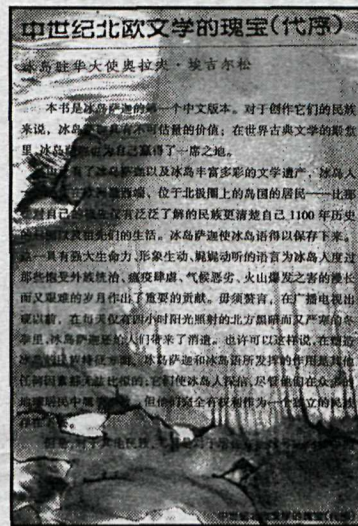 中世纪北欧文学的瑰宝(代序)
冰岛驻华大使奥拉夫·埃吉尔松
本书是冰岛萨迦的第一个中文版本。对于创作它们的民族
来说,冰岛萨迦具有不可估量的价值;在世界古典文学的殿堂
里,冰岛萨迦也为自己赢得了一席之地。
有了冰岛萨迦以及冰岛丰富多彩的文学遗产,冰岛人
位于北极圈上的岛国的居民——比那
些对自己的祖先仅有泛泛了解的民族更清楚自己 1100 年历史
以及祖先们的生活。冰岛萨迦使冰岛语得以保存下来。
这一具有强大生命力、形象生动、娓娓动听的语言为冰岛人度过
那些饱受外族统治、瘟疫肆虐、气候恶劣、火山爆发之害的漫长
而又艰难的岁月作出了重要的贡献。毋须赘言,在广播电视出
现以前,在每天仅有四小时阳光照射的北方黑暗而又严寒的冬
季里,冰岛萨迦还给人们带来了消遣。也许可以这样说,在塑造
冰岛的民族特征方面,冰岛萨迦和冰岛语所发挥的作用是其他
任何因素都无法比拟的;它们使冰岛人深信,尽管他们在众多的
地球居民中属 但他们完全有权利作为一个独立的民族
存在下去。